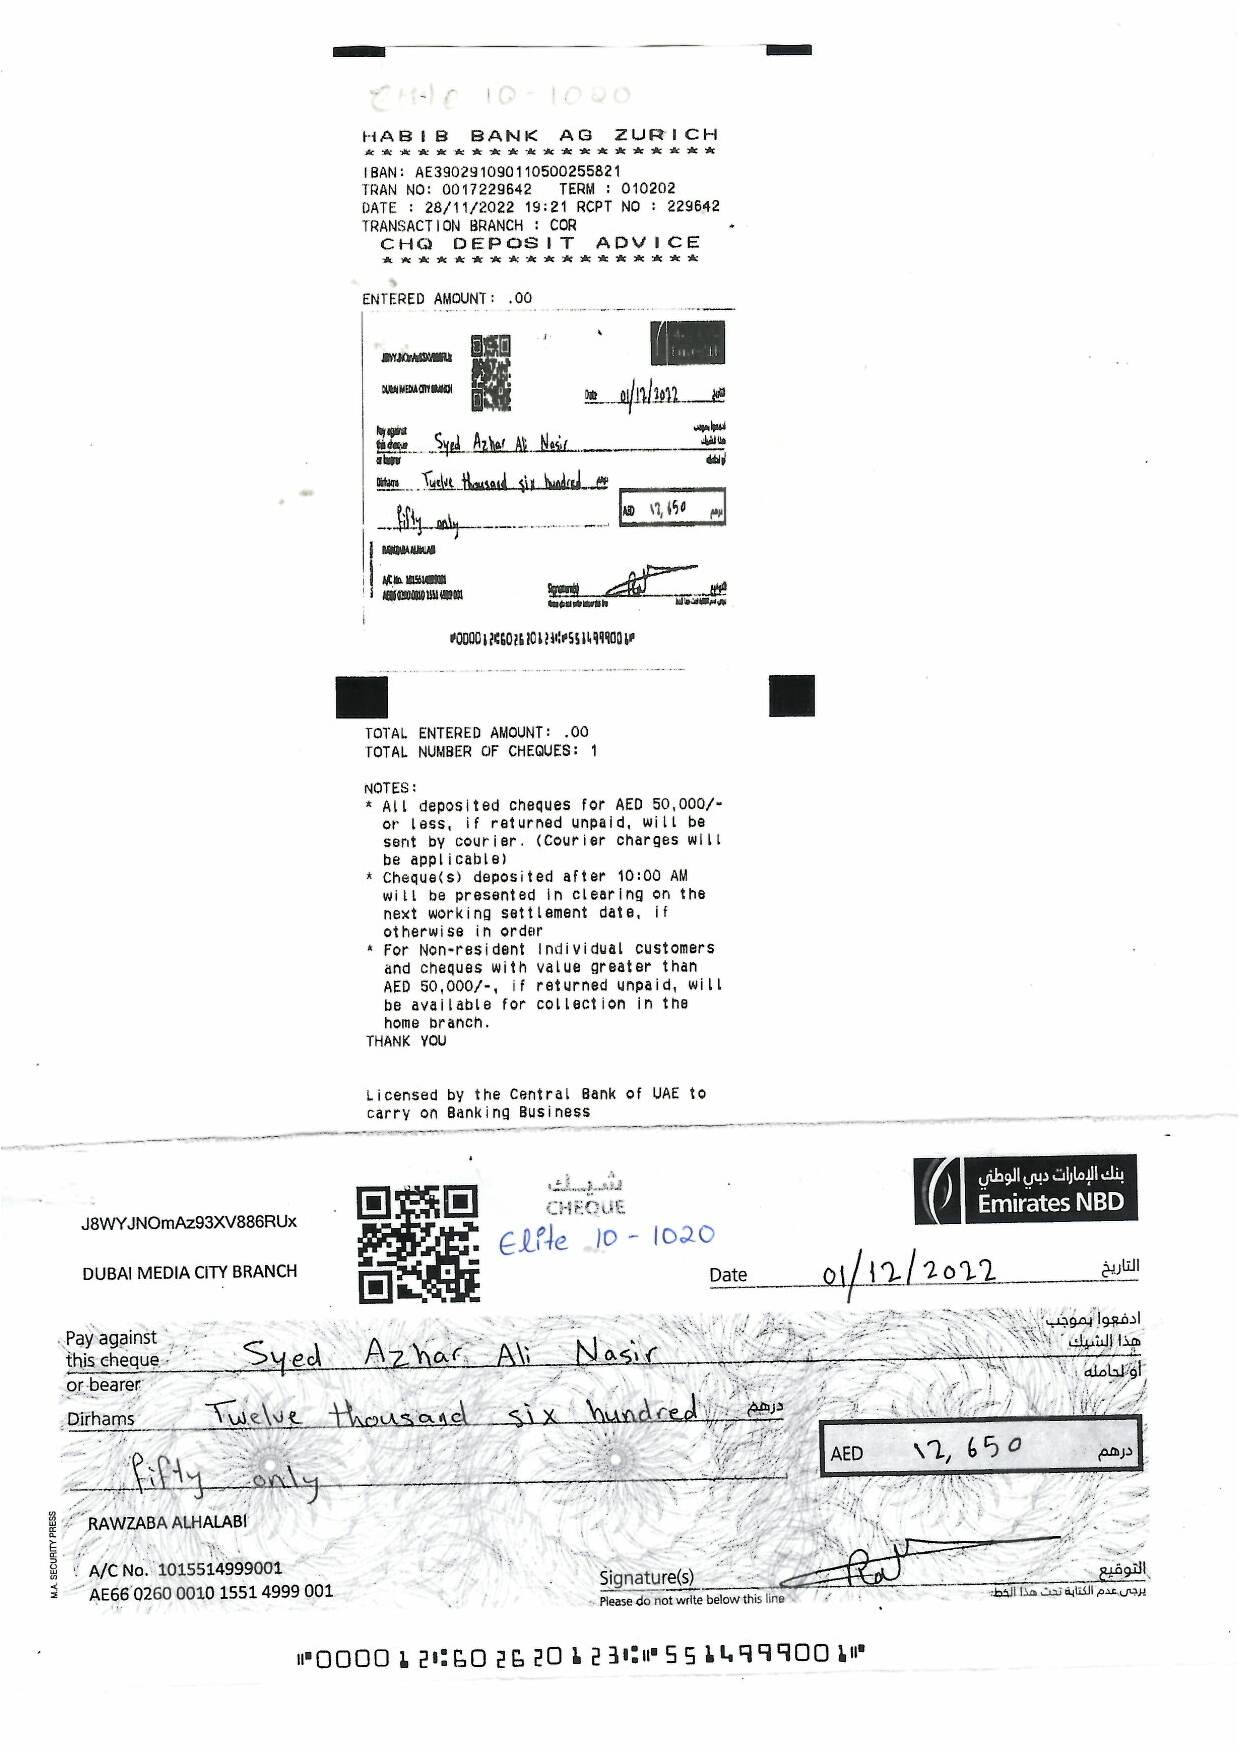 HABIB BANK AG ZURICH
* * * * * * * * * * * * * * * * * * * *
IBAN: AE390291090110500255821
TRAN NO: 0017229642 TERM : 010202
DATE : 28/11/2022 19:21 RCPT NO : 229642
TRANSACTION BRANCH : COR
CHQ DEPOSIT ADVICE
* * * * * * * * * * * * * * * * * *
ENTERED AMOUNT: .00
DUBAI MEDIA CITY BRANCH
Date 01/12/2022 التاريخ
Pay against
this cheque Syed Azhar Ali Nasir
or bearer
Dirhams Twelve thousand six hundred درهم
fifty only
AED 12,650 درهم
RAWZABA ALHALABI
A/C No. 1015514999001
AE66 0260 0010 1551 4999 001
Signature(s) التوقيع
Please do not write below this line
TOTAL ENTERED AMOUNT: .00
TOTAL NUMBER OF CHEQUES: 1
NOTES:
* All deposited cheques for AED 50,000/-
or less, if returned unpaid, will be
sent by courier. (Courier charges will
be applicable)
* Cheque(s) deposited after 10:00 AM
will be presented in clearing on the
next working settlement date, if
otherwise in order
* For Non-resident Individual customers
and cheques with value greater than
AED 50,000/-, if returned unpaid, will
be available for collection in the
home branch.
THANK YOU
Licensed by the Central Bank of UAE to
carry on Banking Business
بنك الإمارات دبي الوطني
Emirates NBD
شيك
CHEQUE
J8WYJNOmAz93XV886RUx
Elite 10 - 1020
DUBAI MEDIA CITY BRANCH
Date 01/12/2022 التاريخ
Pay against ادفعوا بموجب
this cheque Syed Azhar Ali Nasir هذا الشيك
or bearer أو لحامله
Dirhams Twelve thousand six hundred درهم
fifty only
AED 12,650 درهم
RAWZABA ALHALABI
M.A. SECURITY PRESS
A/C No. 1015514999001
AE66 0260 0010 1551 4999 001
Signature(s) التوقيع
Please do not write below this line يرجى عدم الكتابة تحت هذا الخط
⑈000012⑆602620123⑆⑈5514999001⑈